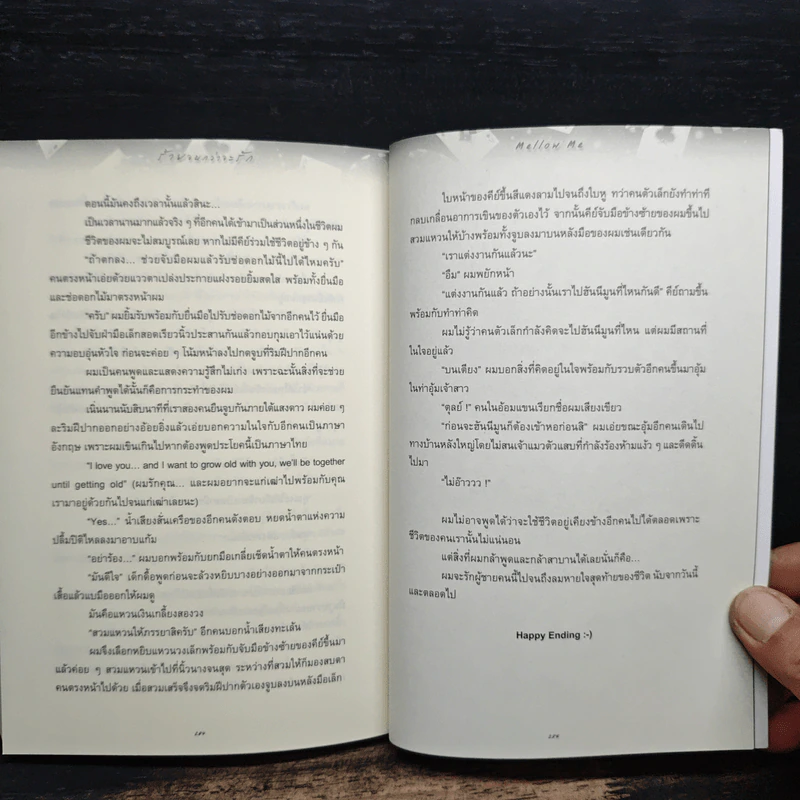 ตอนนี้มันคงถึงเวลานั้นแล้วสินะ...
เป็นเวลานานมากแล้วจริง ๆ ที่อีกคนได้เข้ามาเป็นส่วนหนึ่งในชีวิตผม
ชีวิตของผมจะไม่สมบูรณ์เลย หากไม่มีคีย์ร่วมใช้ชีวิตอยู่ข้าง ๆ กัน
“ถ้าตกลง... ช่วยจับมือผมแล้วรับช่อดอกไม้นี้ไปได้ไหมครับ”
คนตรงหน้าเอ่ยด้วยแววตาเปล่งประกายแฝงรอยยิ้มสดใส พร้อมทั้งยื่นมือ
และช่อดอกไม้มาตรงหน้าผม
“ครับ” ผมยิ้มรับพร้อมกับยื่นมือไปรับช่อดอกไม้จากอีกคนไว้ ยื่นมือ
อีกข้างไปจับฝ่ามือเล็กสอดเรียวนิ้วประสานกันแล้วกอบกุมเอาไว้แน่นด้วย
ความอบอุ่นหัวใจ ก่อนจะค่อย ๆ โน้มหน้าลงไปกดจูบที่ริมฝีปากอีกคน
ผมเป็นคนพูดและแสดงความรู้สึกไม่เก่ง เพราะฉะนั้นสิ่งที่จะช่วย
ยืนยันแทนคำพูดได้นั้นก็คือการกระทำของผม
เนิ่นนานนับสิบนาทีที่เราสองคนยืนจูบกันภายใต้แสงดาว ผมค่อย ๆ
ละริมฝีปากออกอย่างอ้อยอิ่งแล้วเอ่ยบอกความในใจกับอีกคนเป็นภาษา
อังกฤษ เพราะผมเขินเกินไปหากต้องพูดประโยคนี้เป็นภาษาไทย
“I love you... and I want to grow old with you, we'll be together
until getting old” (ผมรักคุณ... และผมอยากจะแก่เฒ่าไปพร้อมกับคุณ
เรามาอยู่ด้วยกันไปจนแก่เฒ่าเลยนะ)
“Yes...” น้ำเสียงสั่นเครือของอีกคนดังตอบ หยดน้ำตาแห่งความ
ปลื้มปีติไหลลงมาอาบแก้ม
“อย่าร้อง...” ผมบอกพร้อมกับยกมือเกลี่ยเช็ดน้ำตาให้คนตรงหน้า
“มันดีใจ” เด็กดื้อพูดก่อนจะล้วงหยิบบางอย่างออกมาจากกระเป๋า
เสื้อแล้วแบมือออกให้ผมดู
มันคือแหวนเงินเกลี้ยงสองวง
“สวมแหวนให้ภรรยาสิครับ” อีกคนบอกน้ำเสียงทะเล้น
ผมจึงเลือกหยิบแหวนวงเล็กพร้อมกับจับมือข้างซ้ายของคีย์ขึ้นมา
แล้วค่อย ๆ สวมแหวนเข้าไปที่นิ้วนางจนสุด ระหว่างที่สวมให้ก็มองสบตา
คนตรงหน้าไปด้วย เมื่อสวมเสร็จจึงจดริมฝีปากตัวเองจูบลงบนหลังมือเล็ก
Mellow Me
ใบหน้าของคีย์ขึ้นสีแดงลามไปจนถึงใบหู ทว่าคนตัวเล็กยังทำท่าที
กลบเกลื่อนอาการเขินของตัวเองไว้ จากนั้นคีย์จับมือข้างซ้ายของผมขึ้นไป
สวมแหวนให้บ้างพร้อมทั้งจูบลงมาบนหลังมือของผมเช่นเดียวกัน
“เราแต่งงานกันแล้วนะ”
“อืม” ผมพยักหน้า
“แต่งงานกันแล้ว ถ้าอย่างนั้นเราไปฮันนีมูนที่ไหนกันดี” คีย์ถามขึ้น
พร้อมกับทำท่าคิด
ผมไม่รู้ว่าคนตัวเล็กกำลังคิดจะไปฮันนีมูนที่ไหน แต่ผมมีสถานที่
ในใจอยู่แล้ว
“บนเตียง” ผมบอกสิ่งที่คิดอยู่ในใจพร้อมกับรวบตัวอีกคนขึ้นมาอุ้ม
ในท่าอุ้มเจ้าสาว
“ตุลย์ !” คนในอ้อมแขนเรียกชื่อผมเสียงเขียว
“ก่อนจะฮันนีมูนก็ต้องเข้าหอก่อนสิ” ผมเอ่ยขณะอุ้มอีกคนเดินไป
ทางบ้านหลังใหญ่โดยไม่สนเจ้าแมวตัวแสบที่กำลังร้องห้ามแง้ว ๆ และดีดดิ้น
ไปมา
“ไม่อ๊าววว !”
ผมไม่อาจพูดได้ว่าจะใช้ชีวิตอยู่เคียงข้างอีกคนไปได้ตลอดเพราะ
ชีวิตของคนเรานั้นไม่แน่นอน
แต่สิ่งที่ผมกล้าพูดและกล้าสาบานได้เลยนั่นก็คือ...
ผมจะรักผู้ชายคนนี้ไปจนถึงลมหายใจสุดท้ายของชีวิต นับจากวันนี้
และตลอดไป
Happy Ending :-)